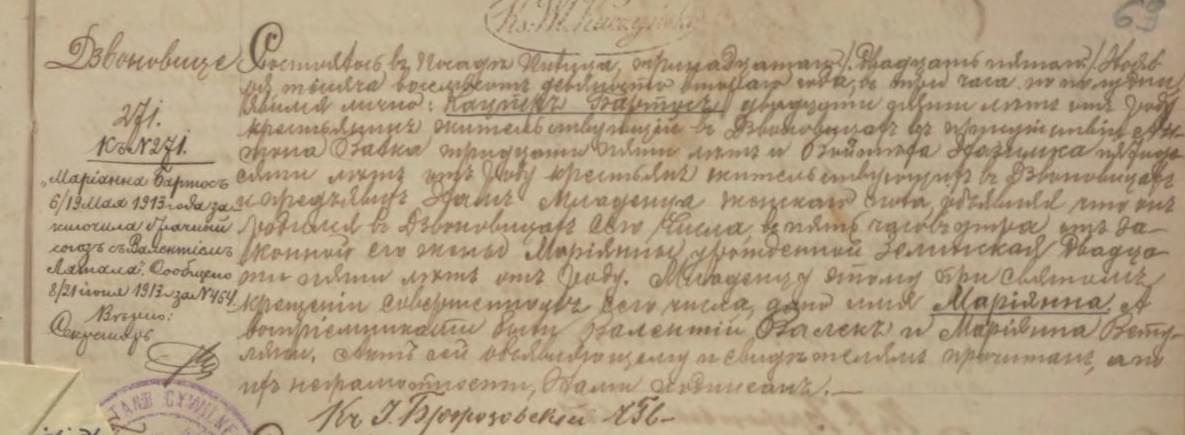 Кс. W.
63
Дзвоновице
271.
Къ N 271.
Маріанна Бартосъ
6/19 Мая 1913 года за-
ключила брачный
союзъ съ Валентіемъ
Сообщено
8/21 іюня 1913 за N 464
Вѣрно:
Секретарь
Состоялось въ Посадѣ Пилица, тринадцатаго /Двадцать пятаго/ Нояб-
ря тысяча восемьсотъ девяносто года, въ три часа по полудни
Явился лично: Бартосъ, двадцати лѣтъ отъ роду
крестьянинъ жительствующій въ Дзвоновицахъ въ присутствіи Ан-
тона тридцати пяти лѣтъ и Войтѣха пятиде-
сяти лѣтъ отъ роду крестьянъ жительствующихъ въ Дзвоновицахъ
и предъявилъ Намъ Младенца женскаго пола, объявляя что онъ
родился въ Дзвоновицахъ сего числа, въ пять часовъ утра отъ за-
конной его жены Маріянны, урожденной Зелинская двадца-
ти пяти лѣтъ отъ роду. Младенцу этому при святомъ
крещеніи совершенномъ сего числа, дано имя Маріянна, А
воспріемниками были Валентій Валекъ и Маріянна
Актъ сей объявляющему и свидѣтелямъ прочитанъ, а по
ихъ неграмотности, Нами подписанъ.
Кс. І.
STANU CYWILNE